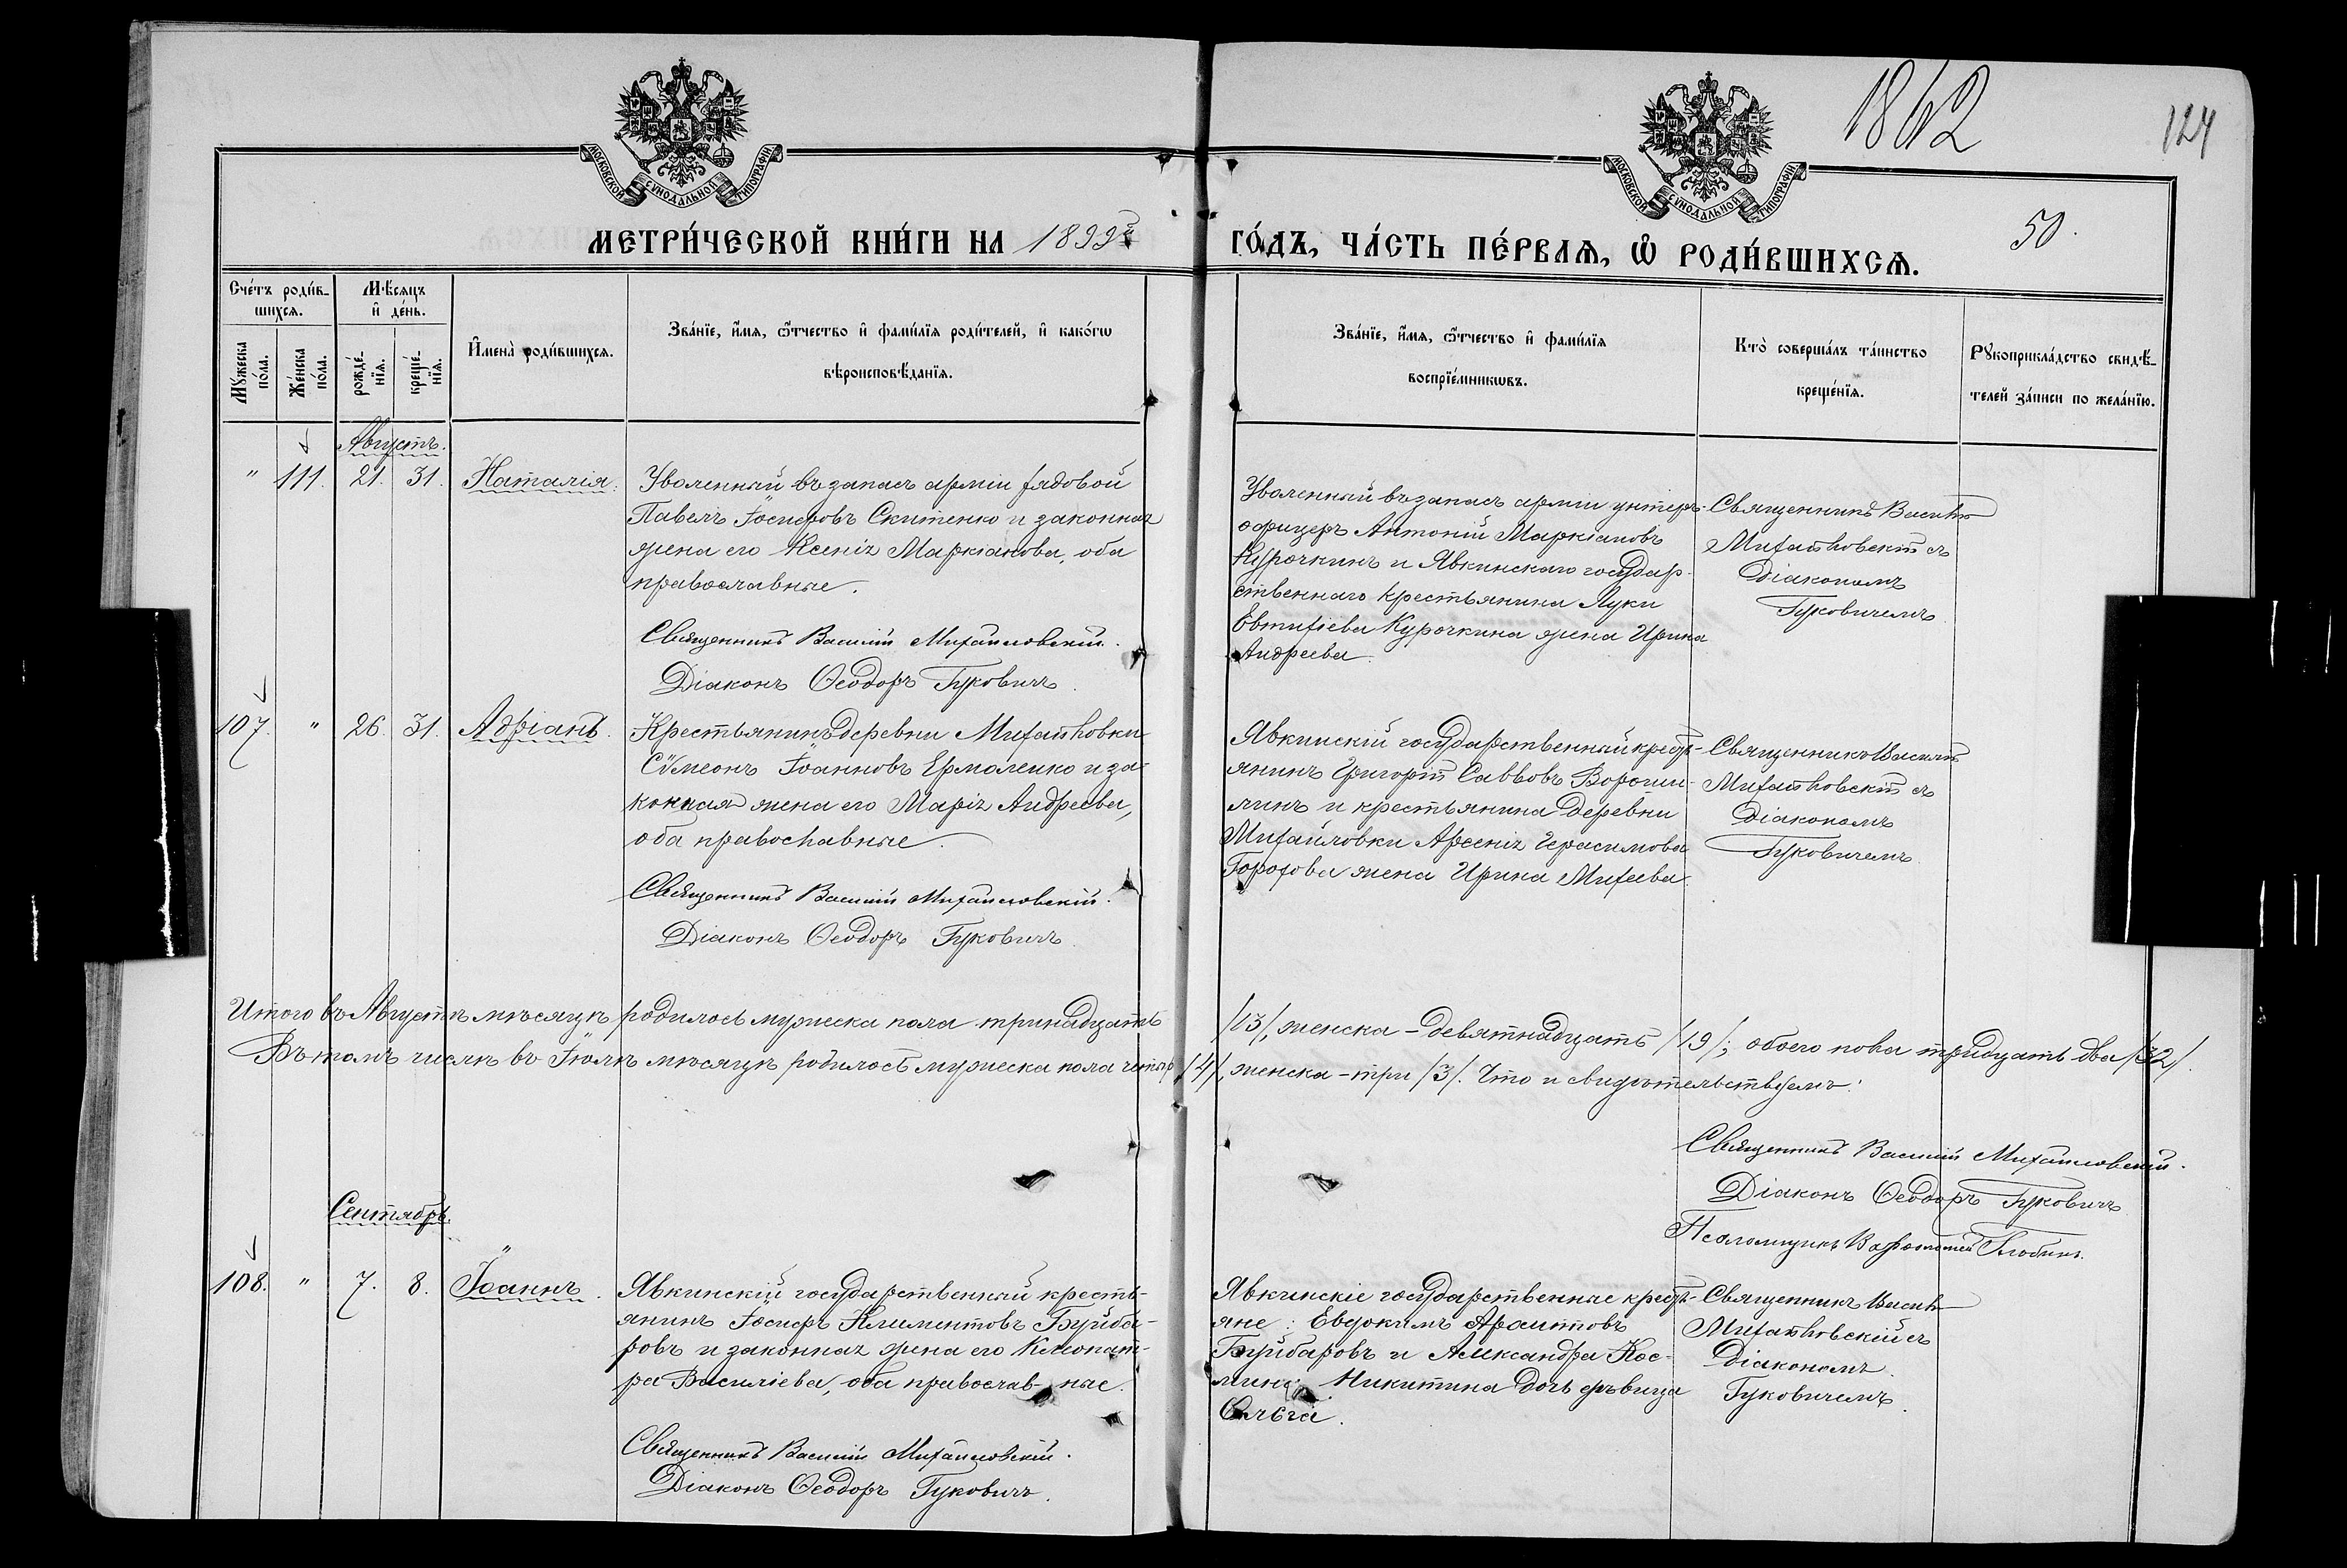 1862
124
50.
МОСКОВСКОЙ СУНОДАЛЬНОЙ ТИПОГРАФІИ
МОСКОВСКОЙ СУНОДАЛЬНОЙ ТИПОГРАФІИ
МЕТРИ́ЧЕСКОЙ КНИ́ГИ НА 1899й ГО́ДЪ, ЧА́СТЬ ПЕ́РВАѦ, Ѡ҆ РОДИ́ВШИХСѦ.
Сче́тъ роди́в-
шихсѧ.
Мꙋ́жеска по́ла.
Же́нска по́ла.
Мѣ́сѧцъ
и҆ де́нь.
рожде́-нїѧ.
креще́-нїѧ.
И҆мена̀ роди́вшихсѧ.
Зва́нїе, и҆́мѧ, ѻ҆́тчество и҆ фами́лїѧ роди́телей, и҆ како́гѡ
вѣроисповѣ́данїѧ.
Зва́нїе, и҆́мѧ, ѻ҆́тчество и҆ фами́лїѧ
воспрїе́мникѡвъ.
Кто̀ соверша́лъ та́инство
креще́нїѧ.
Рꙋкоприкла́дство свидѣ́-
телей за́писи по жела́нїю.
Августъ.
" 111. 21. 31. Наталія.
Уволенный въ запасъ арміи рядовой
Павелъ Іосифовъ Скитенко и законная
жена его Ксенія Маркіанова, оба
православные.
Священникъ Василій Михайловскій.
Діаконъ Ѳеодоръ Гуковичъ.
Уволенный въ запасъ арміи унтеръ-
офицеръ Антоній Маркіановъ
Курочкинъ и Явкинскаго государ-
ственнаго крестьянина Луки
Евтихіева Курочкина жена Ирина
Андреева.
Священникъ Василій
Михайловскій съ
Діакономъ
Гуковичемъ
107. " 26. 31. Адріанъ.
Крестьянинъ деревни Михайловки
Сѵмеонъ Іоанновъ Ермоленко и за-
конная жена его Марія Андреева,
оба православные.
Священникъ Василій Михайловскій.
Діаконъ Ѳеодоръ Гуковичъ
Явкинскій государственный кресть-
янинъ Григорій Саввовъ
и крестьянина деревни
Михайловки Арсенія Герасимова
Горохова жена Ирина Михеева.
Священникъ Василій
Михайловскій съ
Діакономъ
Гуковичемъ.
Итого въ Августѣ мѣсяцѣ родилось мужеска пола тринадцать /13/, женска - девятнадцать /19/; обоего пола тридцать два /32/.
Въ томъ числѣ въ Іюлѣ мѣсяцѣ родилось мужеска пола четыре /4/, женска - три /3/. Что и свидѣтельствуемъ:
Священникъ Василій Михайловскій.
Діаконъ Ѳеодоръ Гуковичъ
Псаломщикъ
Сентябрь.
108. " 7. 8. Іоаннъ.
Явкинскій государственный кресть-
янинъ Іосифъ Климентовъ Буйба-
ровъ и законная жена его Клеопат-
ра Василіева, оба православ-ные.
Священникъ Василій Михайловскій.
Діаконъ Ѳеодоръ Гуковичъ.
Явкинскіе государственные кресть-
яне: Евдокимъ
Буйбаровъ и Александра Кос-
мина Никитина дочь дѣвица
Ольга.
Священникъ Василій
Михайловскій съ
Діакономъ
Гуковичемъ.